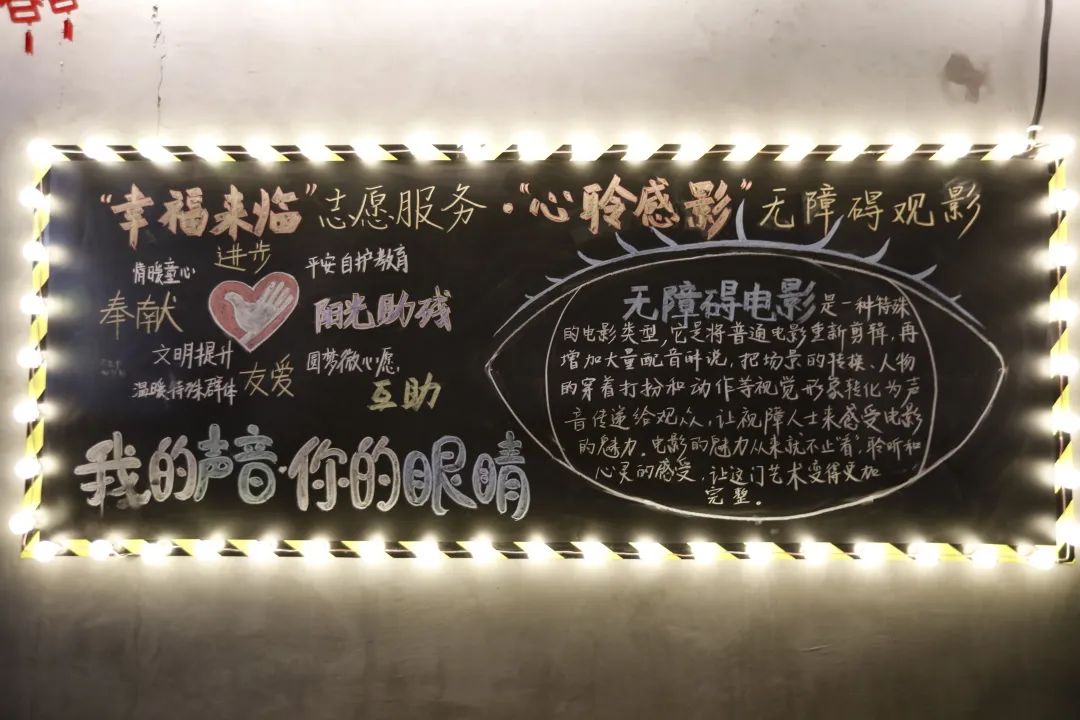 “幸福来临”志愿服务·“心聆感影”无障碍观影
进步
情暖童心
平安自护教育
奉献
阳光助残
文明提升
圆梦微心愿,
温暖特殊群体
友爱
互助
我的声音·你的眼睛
无障碍电影是一种特殊
的电影类型,它是将普通电影重新剪辑,再
增加大量配音解说,把场景的转换、人物
的穿着打扮和动作等视觉形象转化为声
音传递给观众,让视障人士来感受电影
的魅力。电影的魅力从来就不止“看”,聆听和
心灵的感受,让这门艺术变得更加
完整。